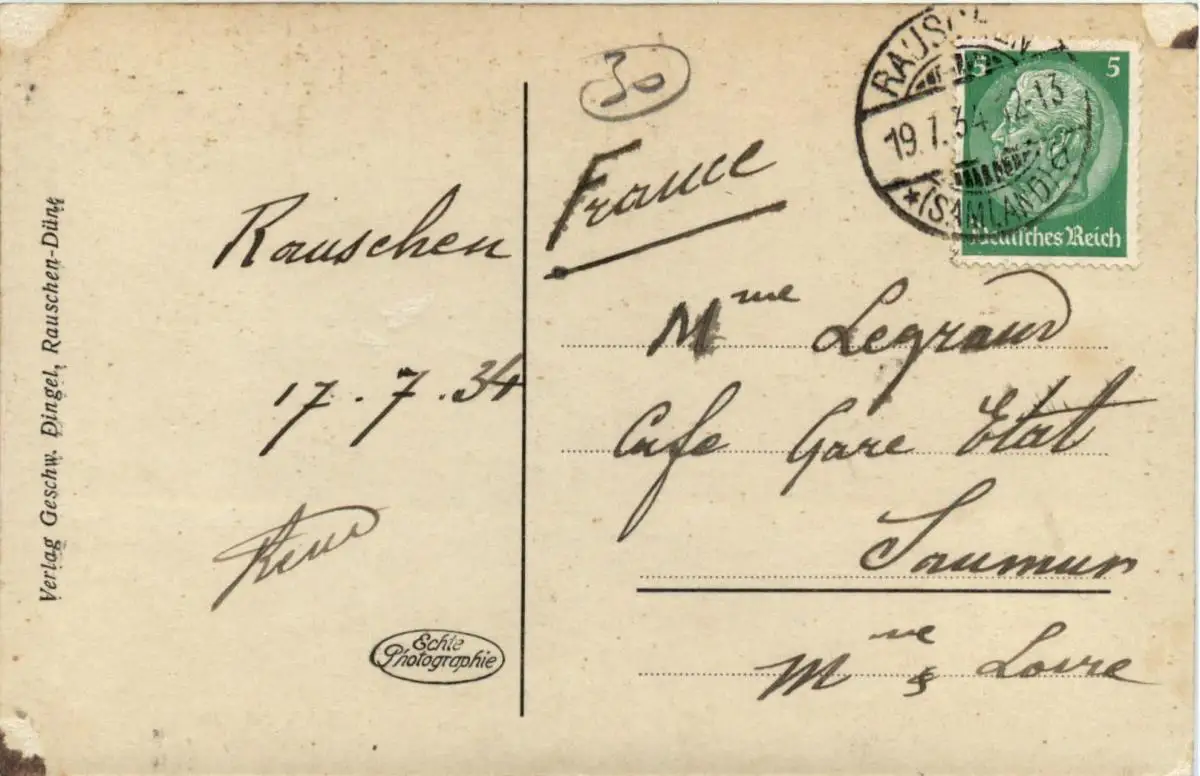 Verlag Geschw. Dingel, Rauschen-Düne
Rauschen
17.7.34
Echte
Photographie
30
France
RAUSCHEN
19.7.34 12-13
*(SAMLAND)a
5 5
Deutsches Reich
Mme Legrand
Cafe Gare Etat
Saumur
Mne & Loire